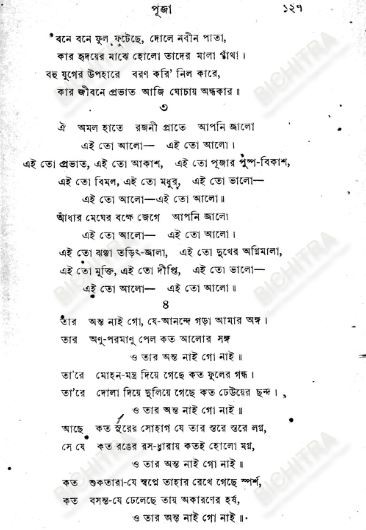 পূজা ১২৭
বনে বনে ফুল ফুটেছে, দোলে নবীন পাতা,
কার হৃদয়ের মাঝে হোলো তাদের মালা গাঁথা।
বহু যুগের উপহারে বরণ করি' নিল কারে,
কার জীবনে প্রভাত আজি ঘোচায় অন্ধকার॥
৩
ঐ অমল হাতে রজনী প্রাতে আপনি জ্বালো
এই তো আলো— এই তো আলো।
এই তো প্রভাত, এই তো আকাশ, এই তো পূজার পুষ্প-বিকাশ,
এই তো বিমল, এই তো মধুর, এই তো ভালো—
এই তো আলো—এই তো আলো॥
আঁধার মেঘের বক্ষে জেগে আপনি জ্বালো
এই তো আলো— এই তো আলো।
এই তো ঝঞ্ঝা তড়িৎ-জ্বালা, এই তো দুখের অগ্নিমালা,
এই তো মুক্তি, এই তো দীপ্তি, এই তো ভালো—
এই তো আলো— এই তো আলো॥
৪
তার অন্ত নাই গো, যে-আনন্দে গড়া আমার অঙ্গ।
তার অণু-পরমাণু পেল কত আলোর সঙ্গ
ও তার অন্ত নাই গো নাই॥
তা'রে মোহন-মন্ত্র দিয়ে গেছে কত ফুলের গন্ধ।
তা'রে দোলা দিয়ে দুলিয়ে গেছে কত ঢেউয়ের ছন্দ।
ও তার অন্ত নাই গো নাই॥
আছে কত সুরের সোহাগ যে তার স্তরে স্তরে লগ্ন,
সে যে কত রঙের রস-ধারায় কতই হোলো মগ্ন,
ও তার অন্ত নাই গো নাই॥
কত শুকতারা-যে স্বপ্নে তাহার রেখে গেছে স্পর্শ,
কত বসন্ত-যে ঢেলেছে তায় অকারণের হর্ষ,
ও তার অন্ত নাই গো নাই॥
BICHITRA
BICHITRA
BICHITRA
BICHITRA
BICHITRA
BICHITRA